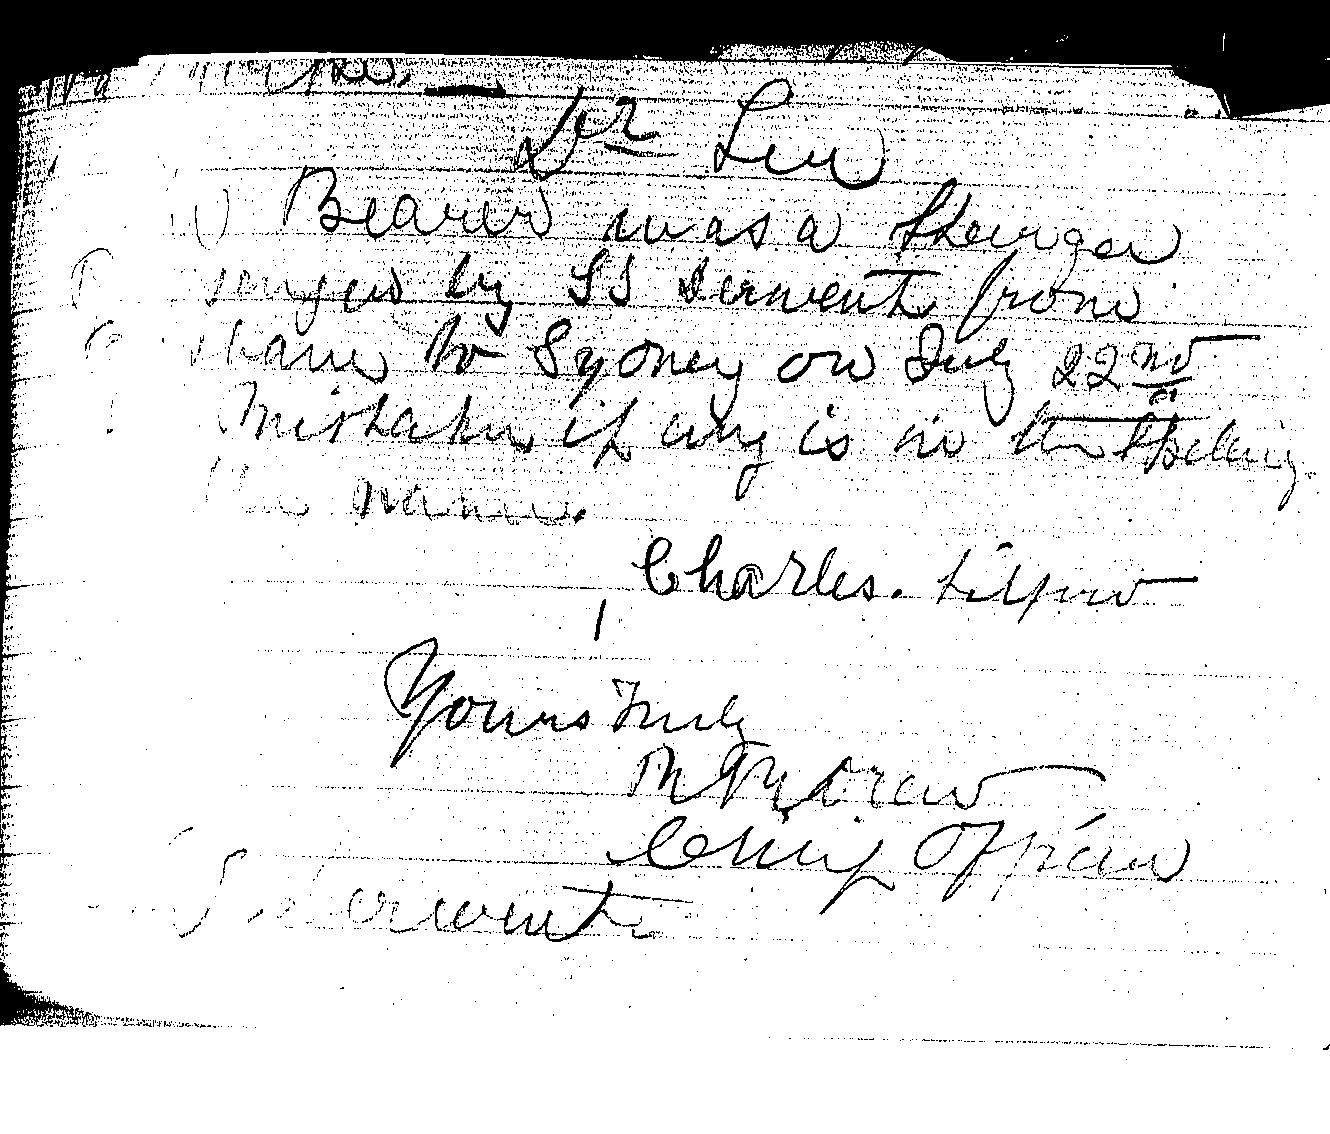 Dr Sir
Bearer was a Steerage
senger by SS Derwent from
to Sydney on July 22nd
Mistake if any is in the Spelling
the name.
Charles.
Yours Truly
Chief Officer
S. S. Derwent